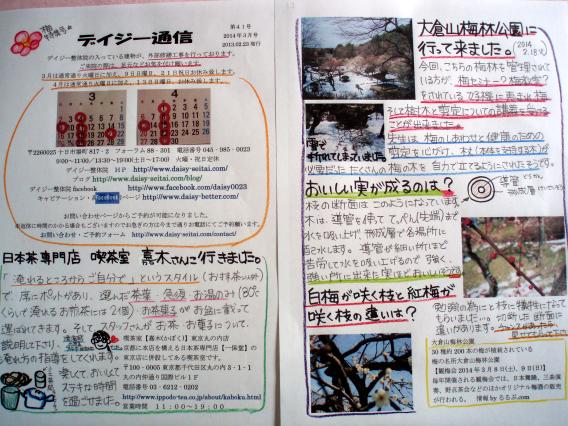 梅特集号
デイジー通信
第41号
2014年3月号
2013.02.23発行
デイジー整体院の入っている建物が、外部修繕工事を行っております。
ご来院の際は、足元などお気を付け願います。
3月は通常通り火曜日に加え、9日日曜日、21日祝日お休み致します。
4月は通常通り火曜日に加え、13日日曜日、お休み致します。
3
4
〒2260025 十日市場町817-2 フォーラム88-301 電話番号 045-985-0023
9:00~11:00/13:30~19:00(土日~17:00) 火曜・祝日定休
デイジー整体院 HP http://www.daisy-seitai.com/
ブログ http://www.daisy-seitai.com/blog/
デイジー整体院 facebook http://www.facebook.com/daisy0023
キャビテーション・facebookページ http://www.daisy-better.com/
お問い合わせページからご予約が可能になりました。
お問い合わせ・ご予約フォーム http://www.daisy-seitai.com/contact/
日本茶専門店 喫茶室 嘉木さんに行きました。
「淹れるところからご自分で」というスタイル(おすすめ以外)
で、席にポットがあり、選んだ茶葉・急須・お湯のみ(80℃
くらいで淹れるお煎茶には2個)・お茶菓子がお盆に載って
運ばれてきます。そして、スタッフさんがお茶・お菓子について、
説明して下さり、
淹れ方の指導をしてくれます。
楽しくておいしくて
ステキな時間
を過ごせました。
喫茶室【嘉木(かぼく)】東京丸の内店
京都に本店を構える日本茶専門店【一保堂】の
東京店に併設してある喫茶室です。
〒100-0005 東京都千代田区丸の内3-1-1
丸の内仲通り国際ビル1F
電話番号 03-6212-0202
http://www.ippodo-tea.co.jp/about/kaboku.html
営業時間 11:00~19:00
大倉山梅林公園に
行って来ました。(2014.2.18火)
今回、こちらの梅林を管理されて
いる方が、梅セミナー?梅教室?
をされている好機に恵まれ梅
そして樹と剪定についての講義を受ける
ことが出来ました。
先生は、梅のしあわせと健康のための
剪定を心がけ、杖(本体を支持する木)が
必要だったたくさんの梅の木を自力で立てるようにされたそうです。
雪で
折れてしまっていました
おいしい実が成るのは?
枝の断面はこのようになっています。
導管
形成層
木は、導管を使っててっぺん(先端)まで
水を吸い上げ、形成層で各場所に
配水します。導管が細い所ほど
苦労して水を吸い上げるので強く、
強い所に出来た実ほどおいしいそうです。
白梅が咲く枝と紅梅が
咲く枝の違いは?
大倉山梅林公園
30種約200本の梅が植えられている
梅の名所大倉山梅林公園
【観梅会 2014年3月8日(土)、9日(日)】
毎年開催される観梅会では、日本舞踊、三曲演
奏、野点茶会などのほかオリジナル梅酒の販売
が行われる。 情報 by るるぶ.com